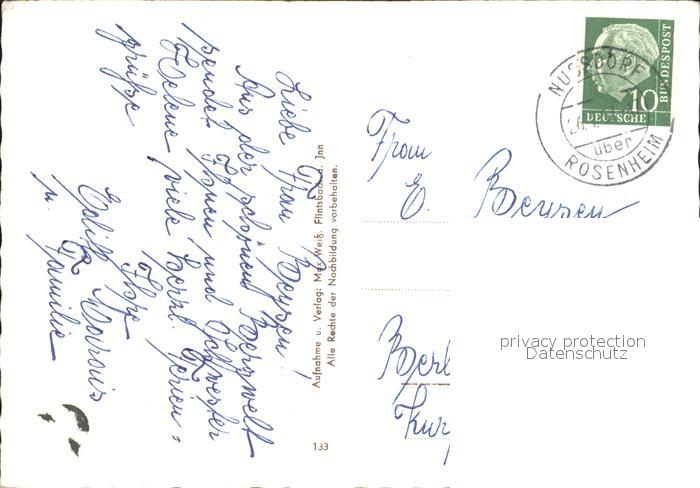 Liebe Frau Beysen!
Aus der schönen Bergwelt
sendet Ihnen und Schwester
Helene viele herzl. Ferien=
grüße
Ihre
Edith
u. Familie
Aufnahme u. Verlag: Max Weiß, Flintsbach a. Inn
Alle Rechte der Nachbildung vorbehalten.
133
Frau
E. Beysen
Berl
Kur
10
DEUTSCHE
BUNDESPOST
NUSSDORF
über
ROSENHEIM
privacy protection
Datenschutz